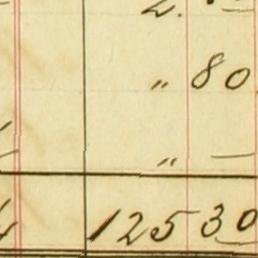 " 80
" —
125 30